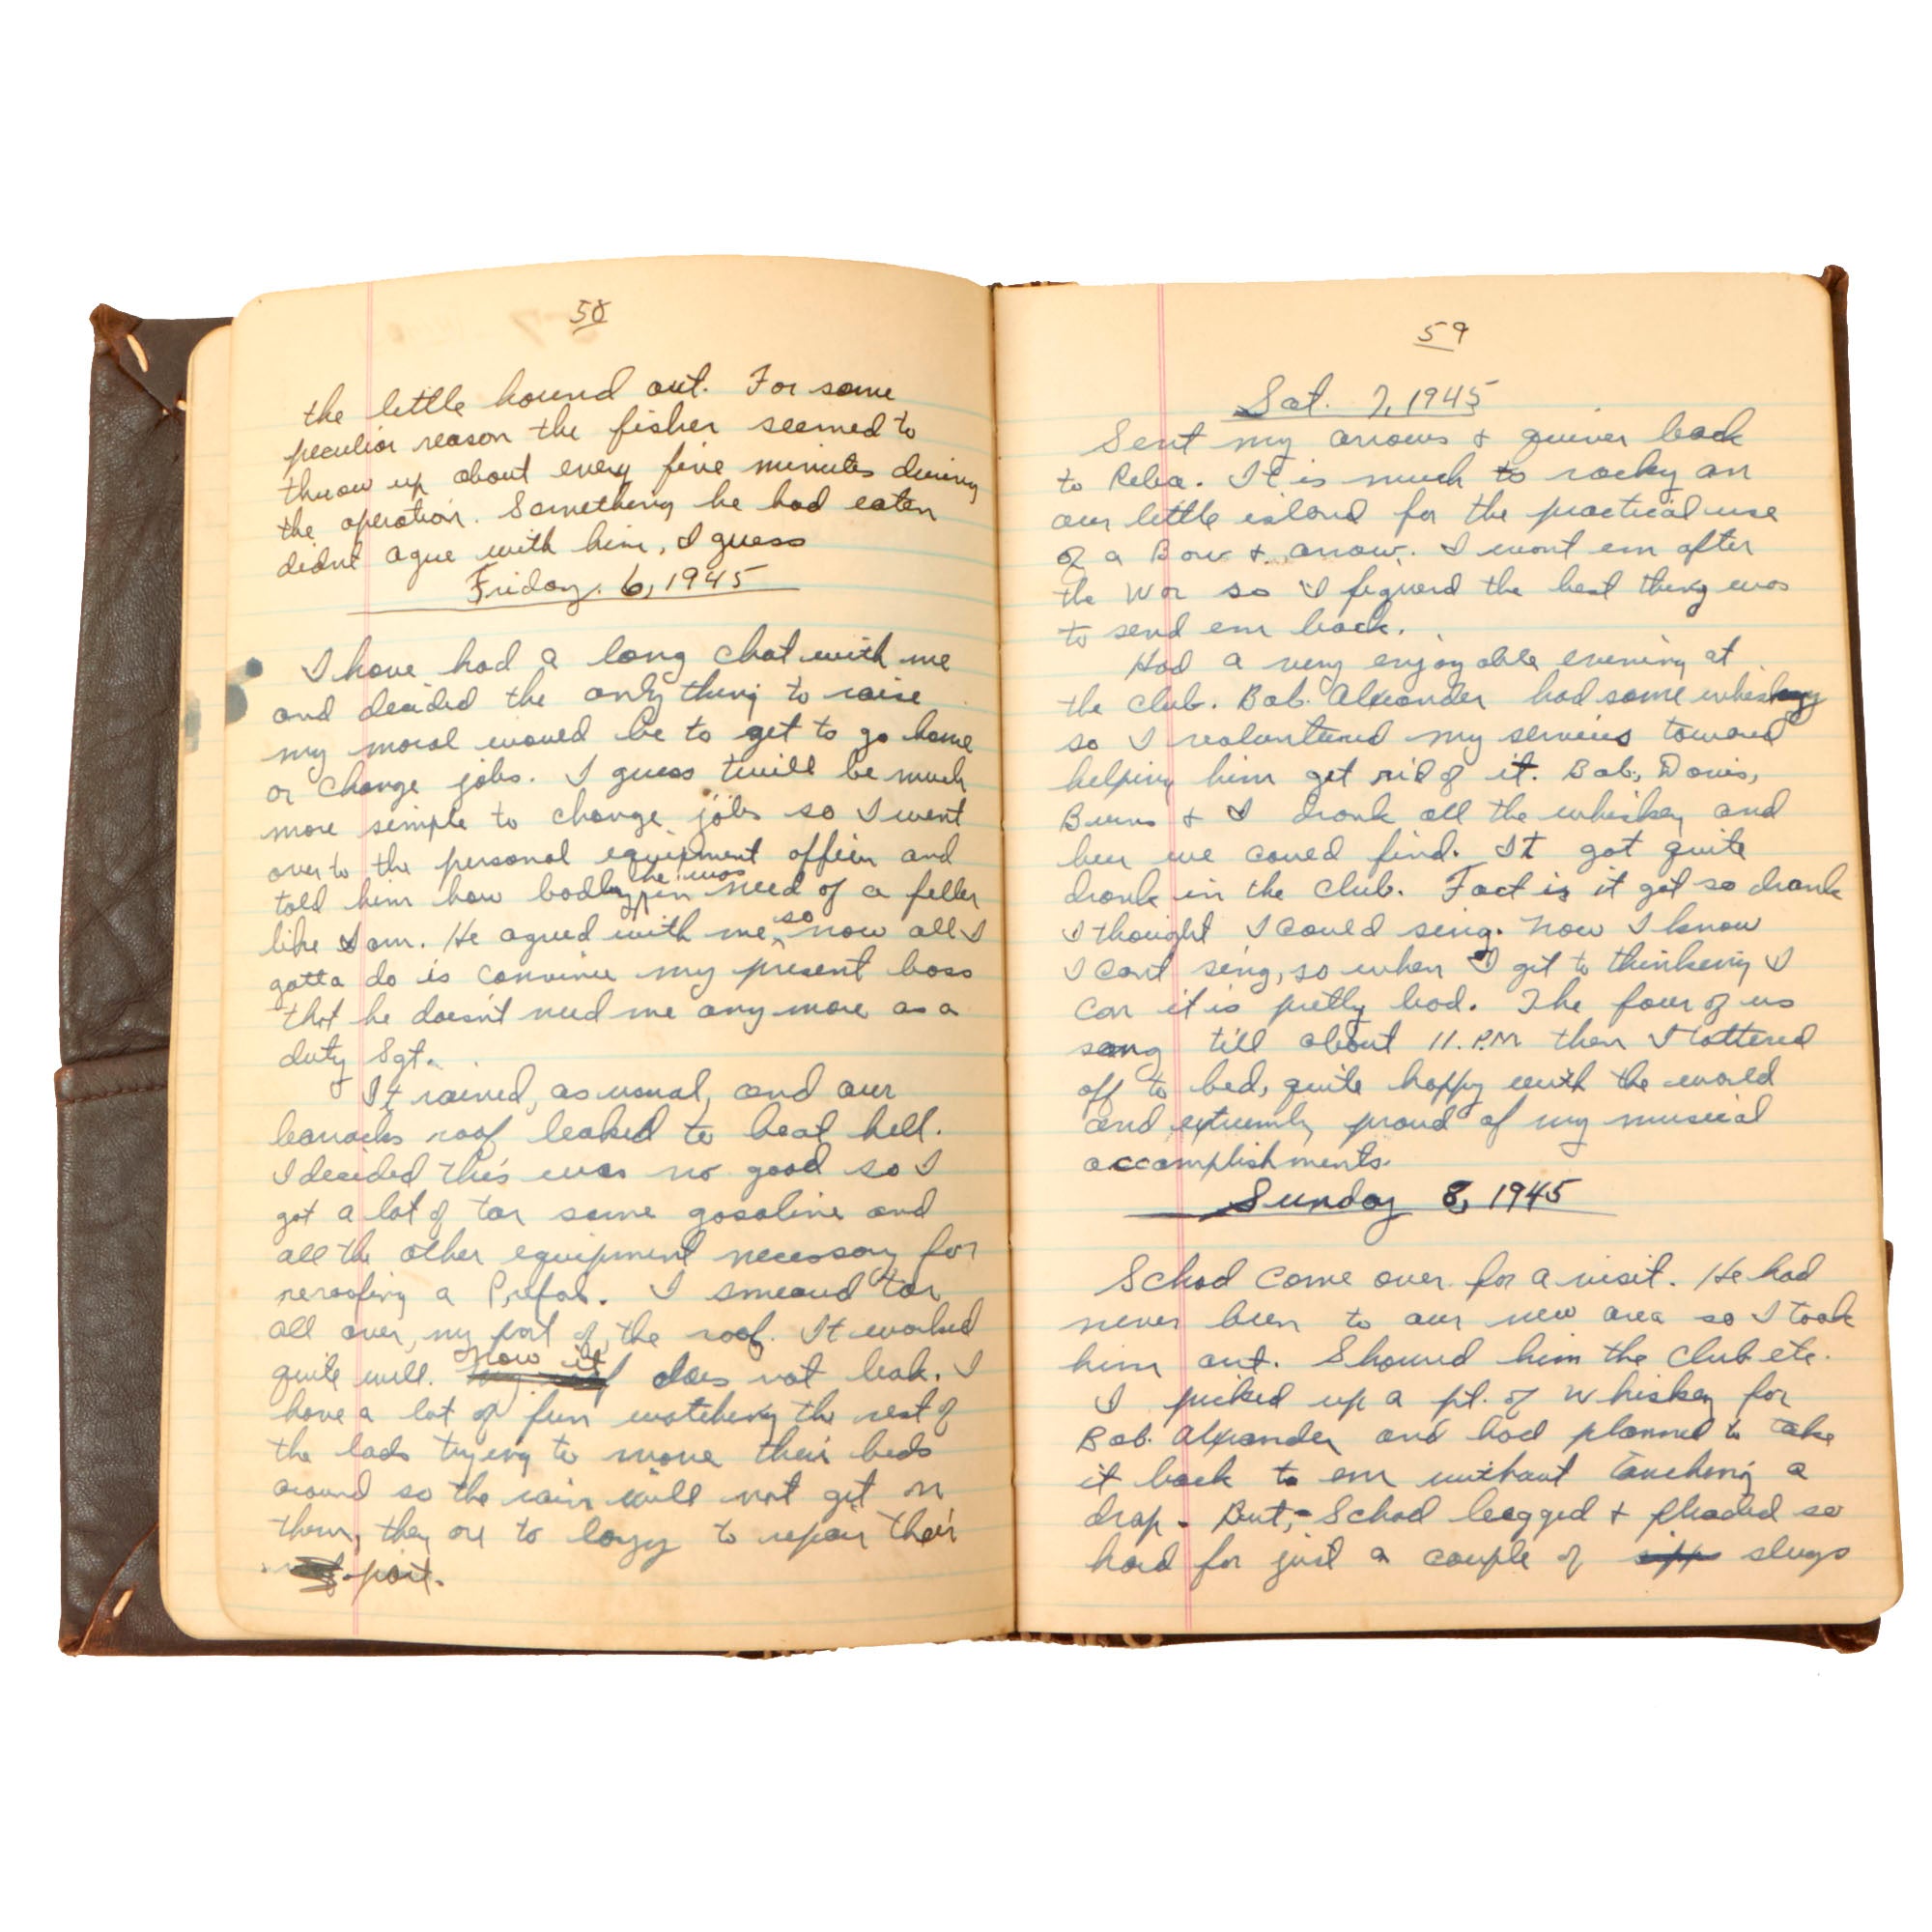 58
the little hound out. For some
peculiar reason the fisher seemed to
throw up about every five minutes during
the operation. Something he had eaten
didnt ague with him, I guess
Friday. 6, 1945
I have had a long chat with me
and decided the only thing to raise
my moral would be to get to go home
or change jobs. I guess twill be much
more simple to change jobs so I went
over to the personal equipment officer and
told him how badly he was in need of a feller
like I am. He agreed with me, so now all I
gotta do is convince my present boss
that he doesn't need me any more as a
duty Sgt.
It rained, as usual, and our
barracks roof leaked to beat hell.
I decided this was no good so I
got a lot of tar some gasoline and
all the other equipment necessary for
reroofing a Prefab. I smeared tar
all over, my part of, the roof. It worked
quite well. now it does not leak. I
have a lot of fun watching the rest of
the lads trying to move their beds
around so the rain will not get on
them, they are to lazy to repair their
part.
59
Sat. 7, 1945
Sent my arrows & quiver back
to Reba. It is much to rocky on
our little island for the practical use
of a Bow & arrow. I want em after
the War so I figured the best thing was
to send em back.
Had a very enjoyable evening at
the club. Bob. Alexander had some whiskey
so I voluntured my services toward
helping him get rid of it. Bob, Davis,
Burns & I drank all the whiskey and
beer we could find. It got quite
drunk in the club. Fact is it got so drunk
I thought I could sing. Now I know
I cant sing, so when I get to thinking I
can it is pretty bad. The four of us
sang till about 11. P.M then I tottered
off to bed, quite happy with the world
and extremly proud of my musical
accomplishments.
Sunday 8, 1945
Schad came over for a visit. He had
never been to our new area so I took
him out. Showed him the club etc.
I picked up a pt. of Whiskey for
Bob. Alexander and had planned to take
it back to em without touching a
drop. But,- Schad begged & pleaded so
hard for just a couple of sipps slugs